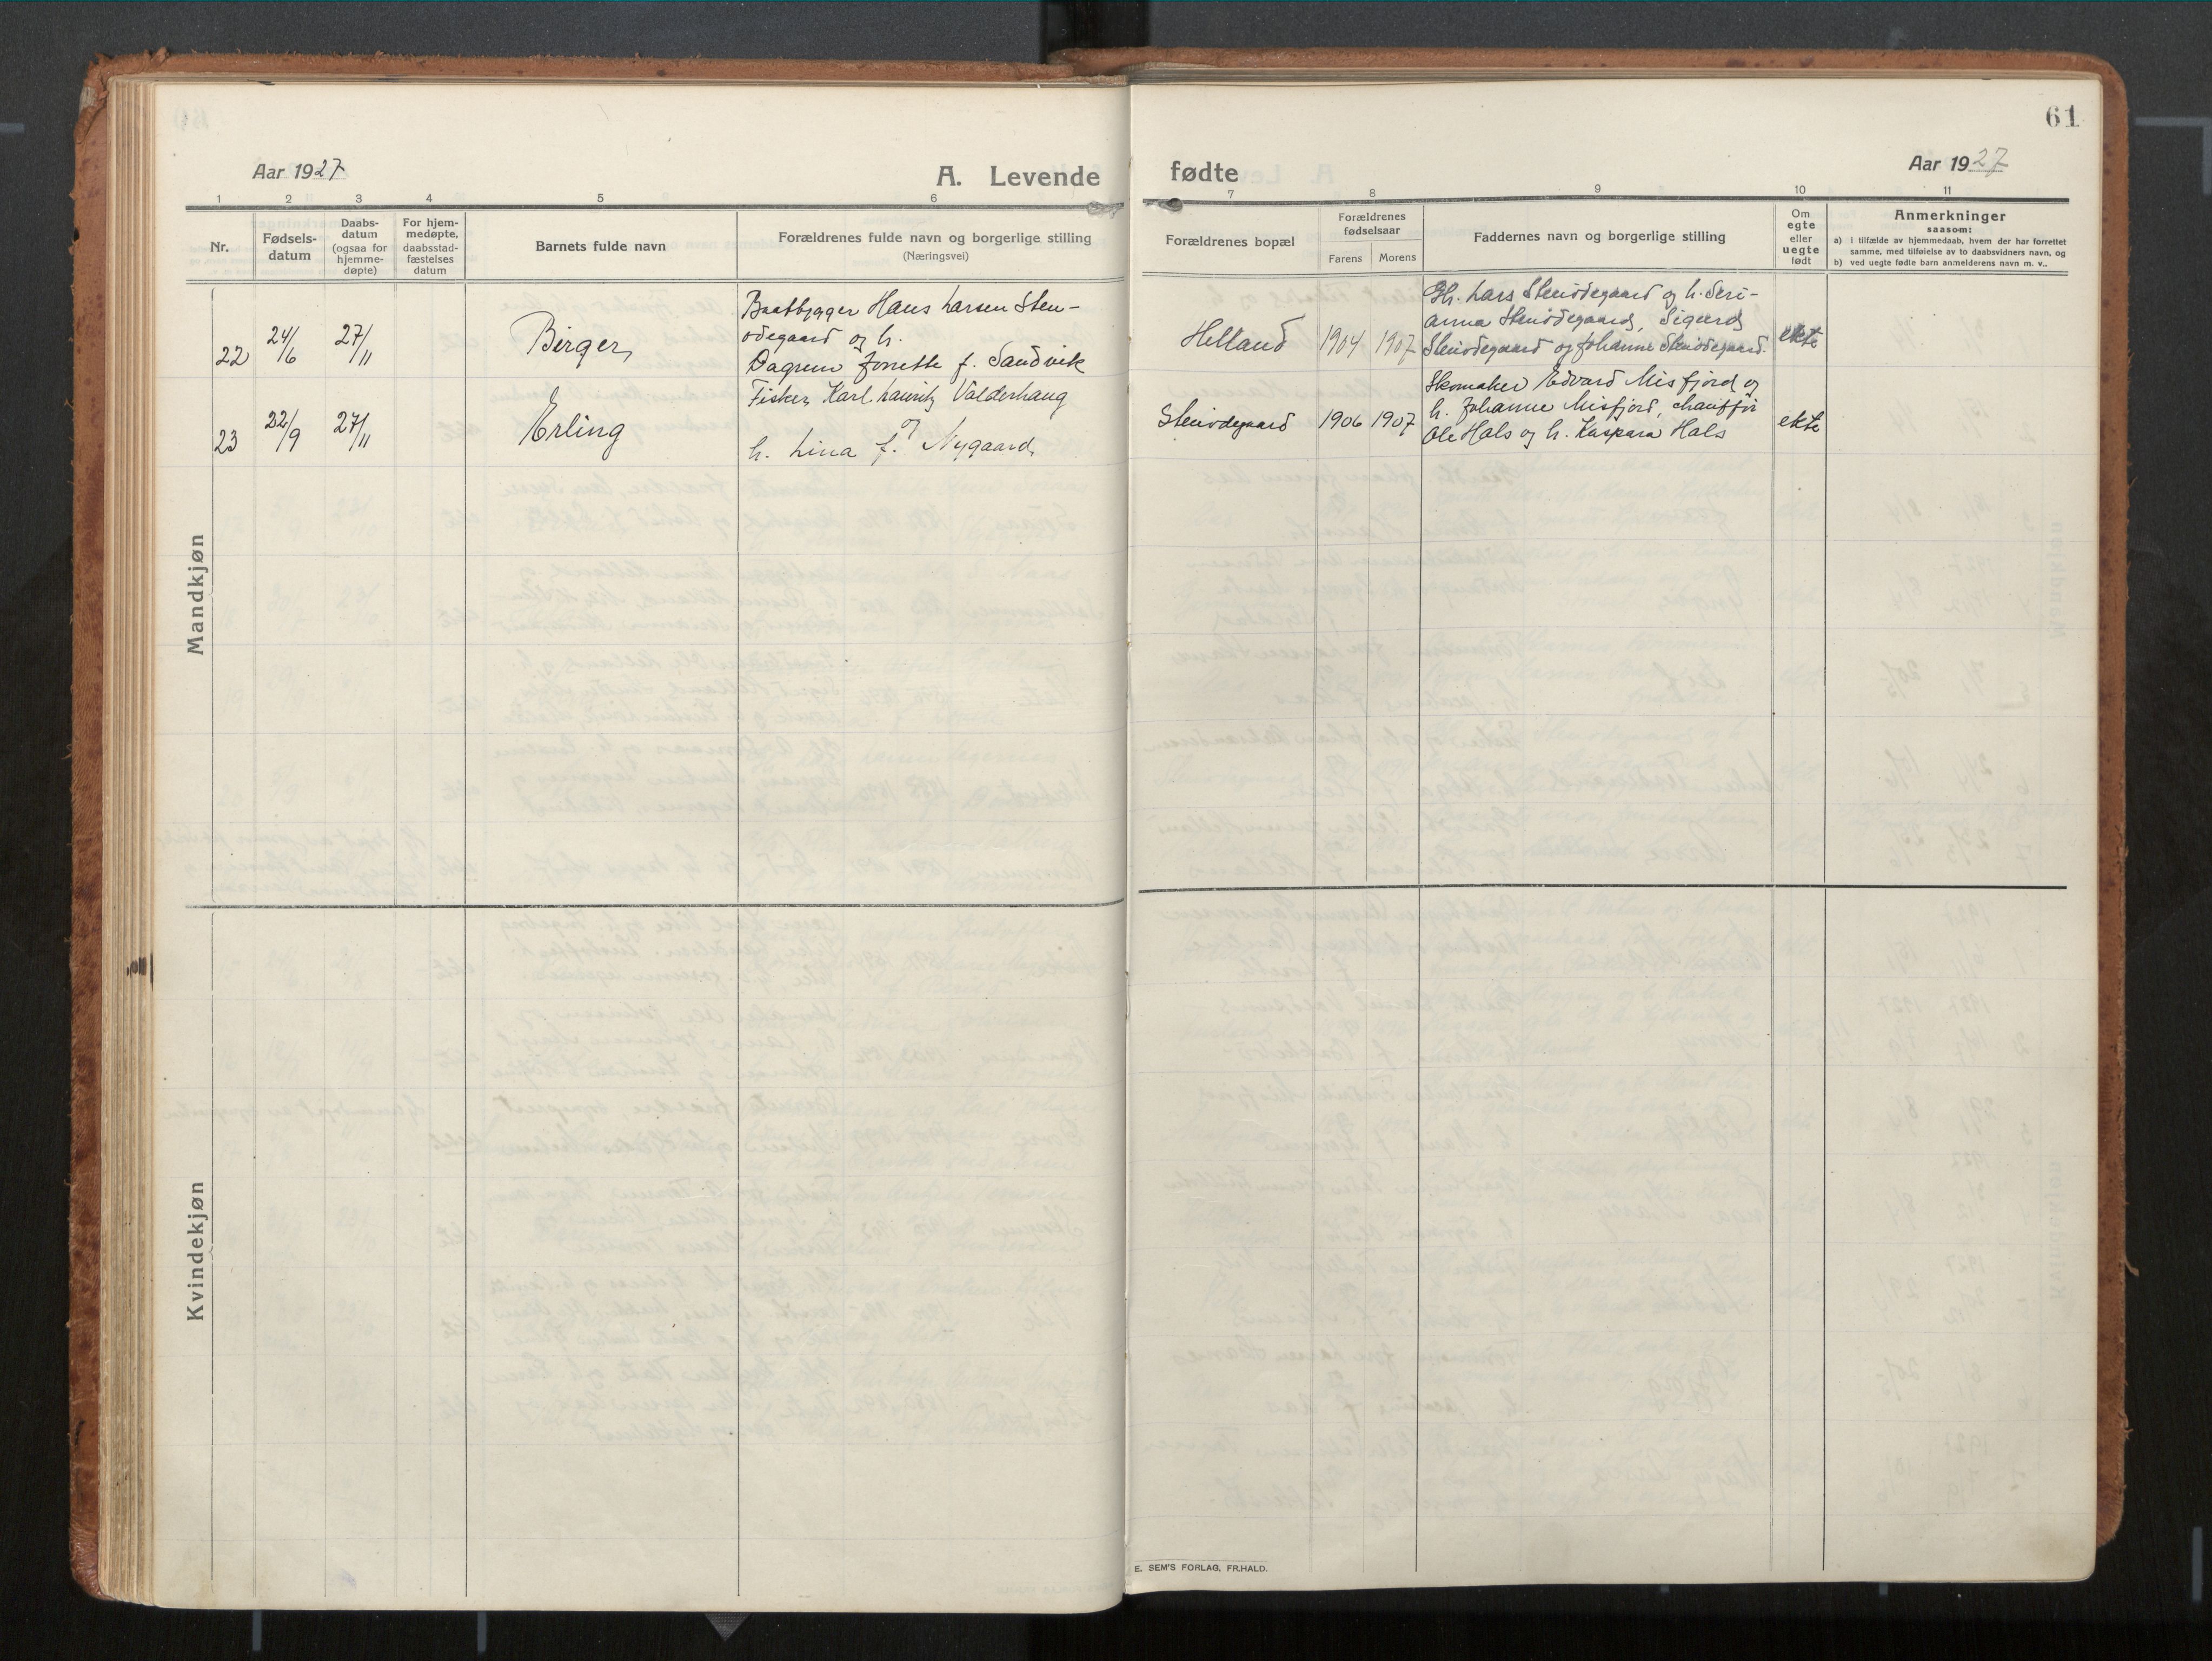 61
Aar 1927
A. Levende fødte
Aar 1927
1 2 3 4 5 6 7 8 9 10 11
Nr.
Fødsels-
datum
Daabs-
datum
(ogsaa for
hjemme-
døpte)
For hjem-
medøpte,
daabsstad-
fæstelses
datum
Barnets fulde navn
Forældrenes fulde navn og borgerlige stilling
(Næringsvei)
Forældrenes bopæl
Forældrenes
fødselsaar
Farens Morens
Faddernes navn og borgerlige stilling
Om
egte
eller
uegte
født
Anmerkninger
saasom:
a) i tilfælde av hjemmedaab, hvem der har forrettet
samme, med tilføielse av to daabsvidners navn, og
b) ved uegte fødte barn anmelderens navn m. v..
Mandkjøn
22
24/6
27/11
Birger
Baatbygger Hans Larsen Sten-
ødegaard og h.
Dagrun f. Sandvik
Helland
1904 1907
Lars Stenødegaard og h. Seri-
anna Stenødegaard, Sigurd
Stenødegaard og Johanne Stenødegaard.
ekte
23
22/9
27/11
Erling
Fisker Karl Lauritz Valderhaug
og
h. Lina f. Nygaard
Stenødegaard
1906 1907
Skomaker Edvard Misfjord og
h. Johanne Misfjord, chauffør
Ole Hals og h. Kaspara Hals
ekte
Kvindekjøn
E. SEM'S FORLAG, FR.HALD.